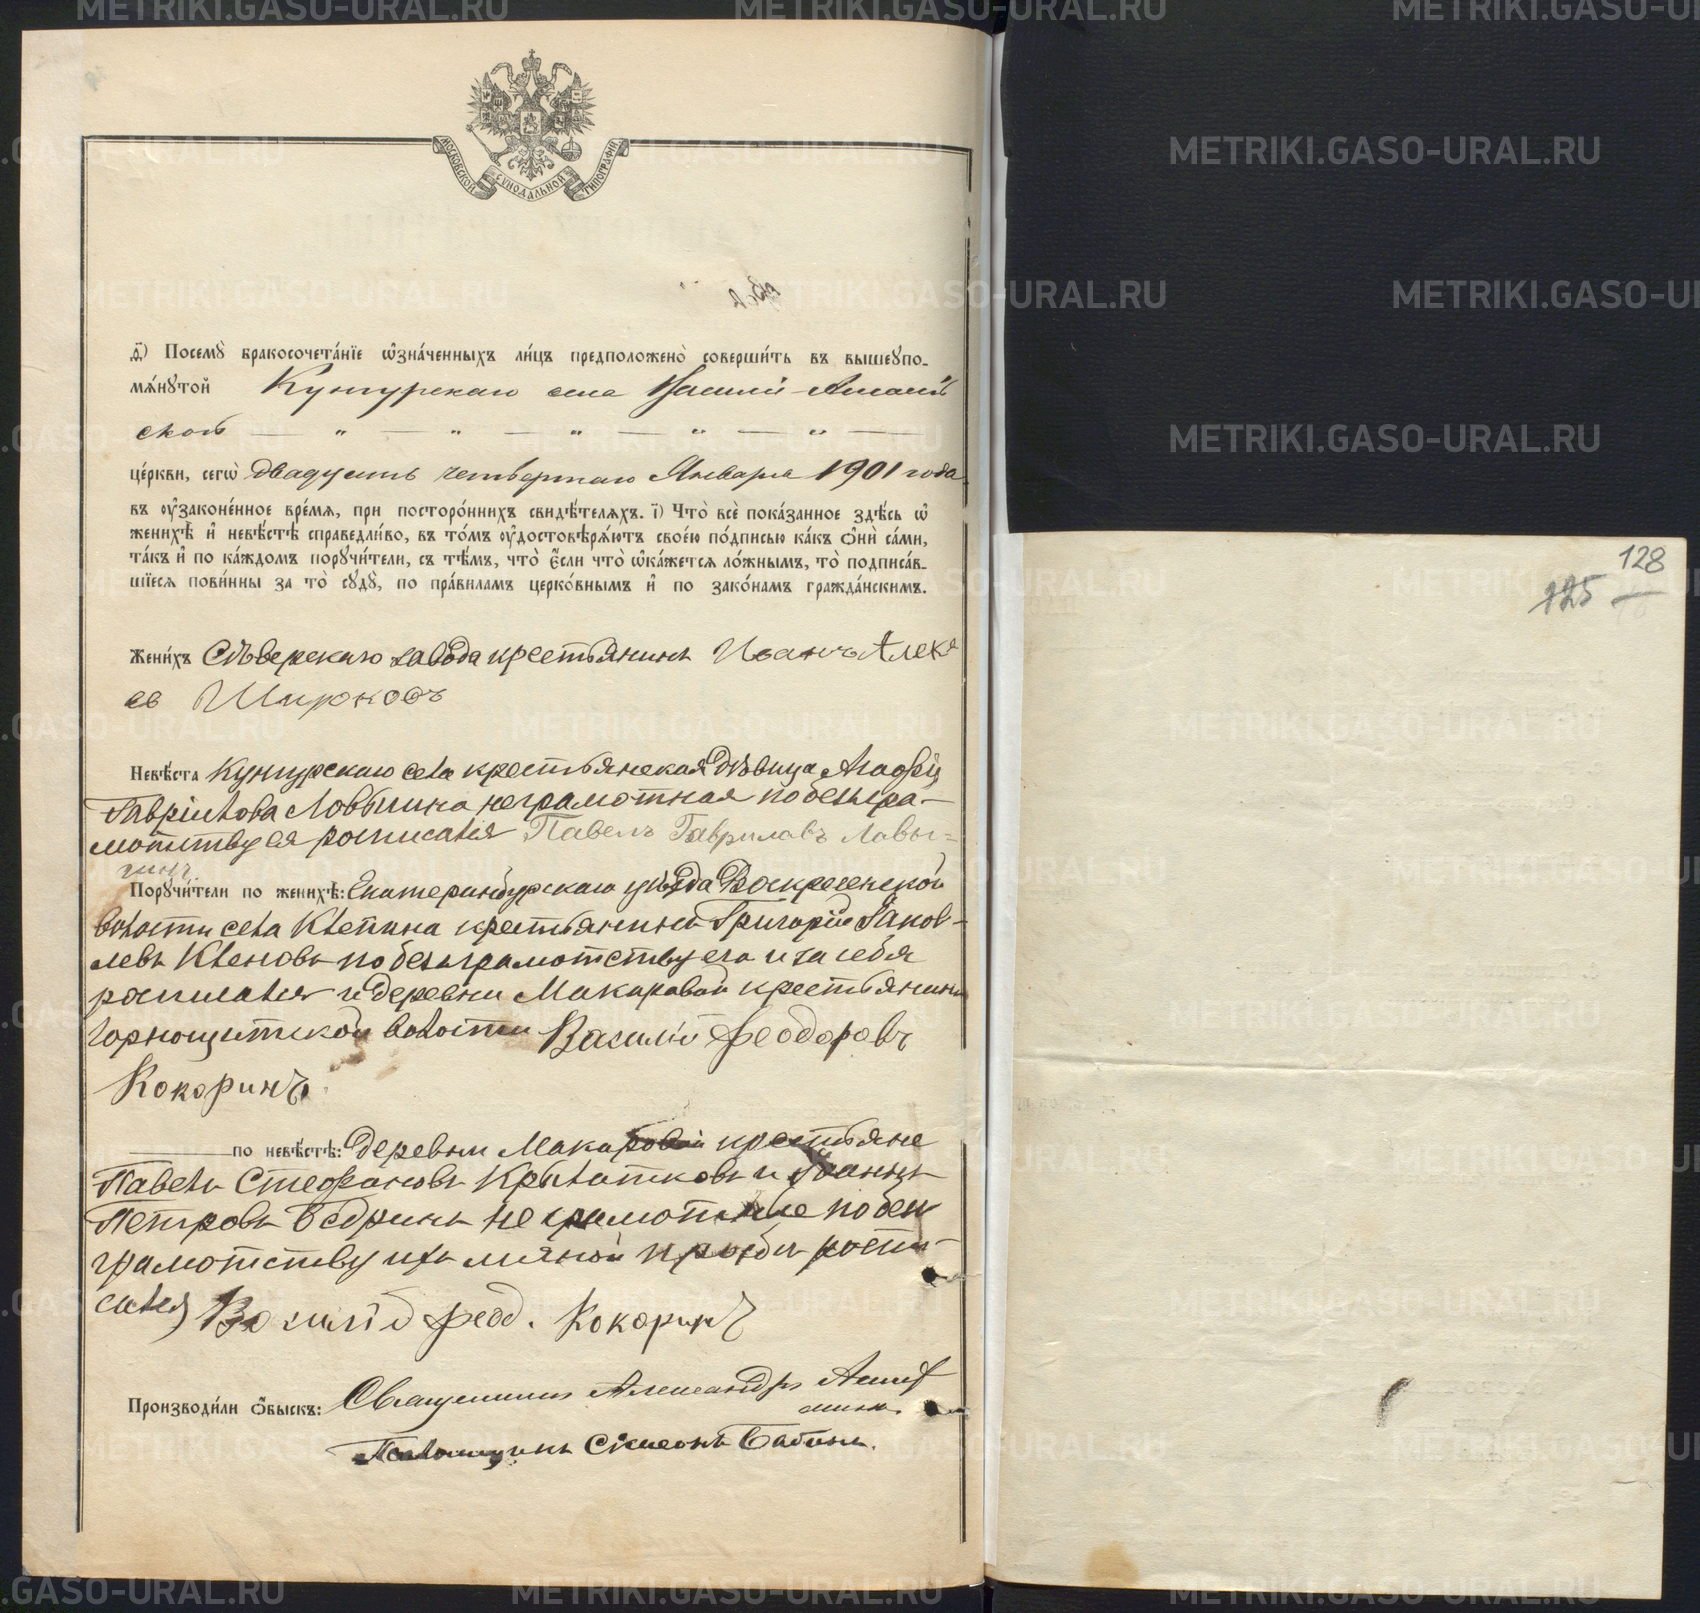 МОСКОВСКОЙ СѴНОДАЛЬНОЙ ТИПОГРАФІИ
ѳ҃) Посемꙋ̀ бракосочета́нїе ѡ҆зна́ченныхъ ли́цъ предположено̀ соверши́ть въ вышеꙋпо-
мѧ́нꙋтой Кунгурскаго села Василій
ской — " — " — " — " — " —
це́ркви, сегѡ̀ двадцать четвертаго Января 1901 года
въ ᲂу҆законе́нное вре́мѧ, при посторо́ннихъ свидѣ́телѧхъ. і҃) Что̀ всѐ пока́занное здѣ́сь ѡ҆
женихѣ̀ и҆ невѣ́стѣ справедли́во, въ то́мъ ᲂу҆достовѣрѧ́ютъ свое́ю по́дписью ка́къ ѻ҆нѝ са́ми,
та́къ и҆ по ка́ждомъ порꙋчи́тели, съ тѣ́мъ, что̀ є҆́сли что̀ ѡ҆ка́жетсѧ ло́жнымъ, то̀ подписа́в-
шїесѧ пови́нны за то̀ сꙋдꙋ̀, по пра́виламъ церко́внымъ и҆ по зако́намъ гражда́нскимъ.
Жени́хъ Сѣверскаго завода крестьянинъ Иванъ Алекѣ
ев Ширковъ
Невѣ́ста Кунгурскаго села крестьянская дѣвица Агафія
Гавріилова Ловыгина неграмотная по безгра-
мотству ея росписался Павелъ Гавриловъ Лавы=
гинъ
Порꙋчи́тели по женихѣ̀: Екатеринбургскаго уѣзда Воскресенской
волости села Клепина крестьянинъ Григорій Яков-
левъ Кленовъ по безграмотству его и за себя
росписался и деревни Макаровой крестьянинъ
горнощитской волости Василій Феодоровъ
Кокоринъ
по невѣ́стѣ: деревни Макаровой крестьяне
Павелъ Стефановъ Крылатковъ и Іоаннъ
Петровъ Бедринъ неграмотные по без
грамотству ихъ личной прозьбы роспи-
сался Василій Феод. Кокоринъ
Производи́ли ѻ҆́быскъ: Священникъ Александръ
Псаломщикъ Сімеонъ Бабинъ.
128
125
METRIKI.GASO-URAL.RU